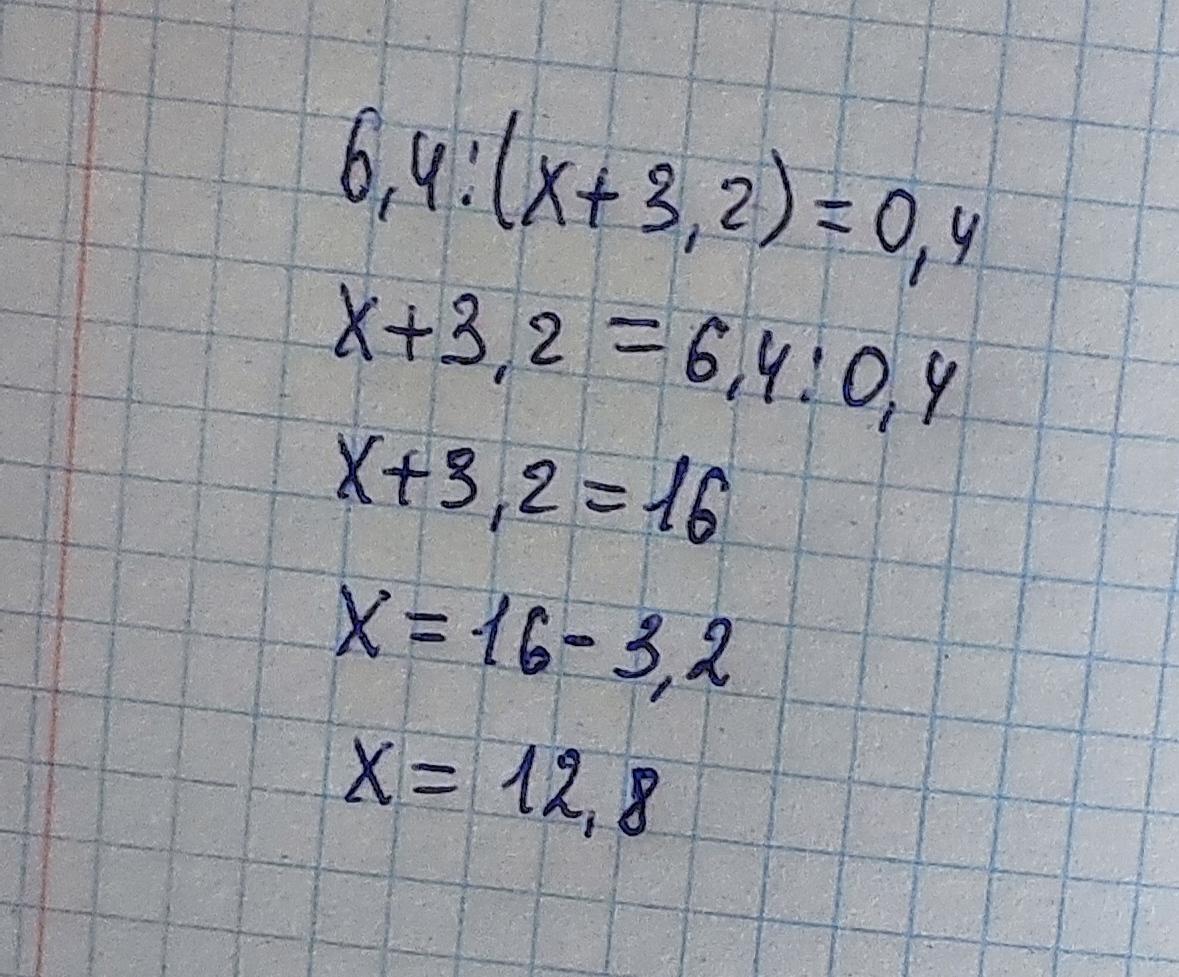 6,4:(x+3,2)=0,4
x+3,2=6,4:0,4
x+3,2=16
x=16-3,2
x=12,8